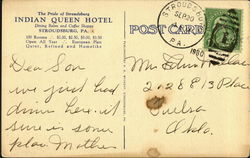 The Pride of Stroudsburg
INDIAN QUEEN HOTEL
Dining Rooms and Coffee Shoppe
STROUDSBURG, PA.
100 Rooms
Open All Year European Plan
Quiet, Refined and Homelike
POST CARD
STROUDSBURG
SEP 20
PA.
Dear Son
we just had
dinner here. it
sure is some
place. Mother
Mr. Edwin
2128 E 13 Place
Tulsa
Okla.